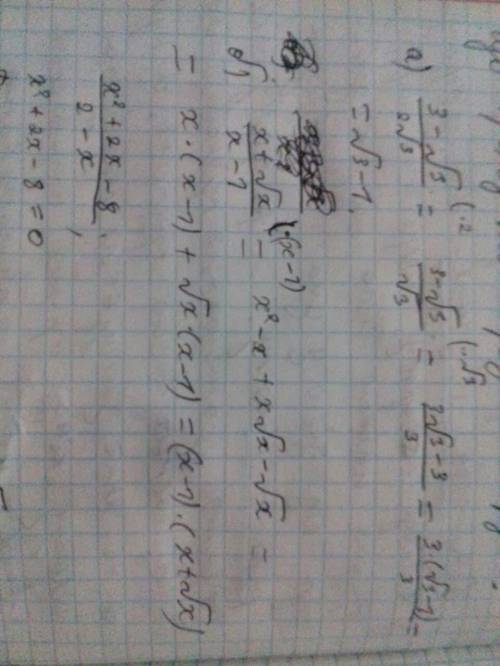 а) \frac{3-\sqrt{3}}{2\sqrt{3}} (·2 = \frac{3-\sqrt{3}}{\sqrt{3}} (·\sqrt{3} = \frac{3\sqrt{3}-3}{3} = \frac{3·(\sqrt{3}-1)}{3} =
= \sqrt{3}-1.
б) \frac{x+\sqrt{x}}{x-1} (·(x-1) = x²-x+x\sqrt{x}-\sqrt{x} =
= x·(x-1)+\sqrt{x}(x-1)=(x-1)·(x+\sqrt{x})
\frac{x²+2x-8}{2-x};
x²+2x-8=0